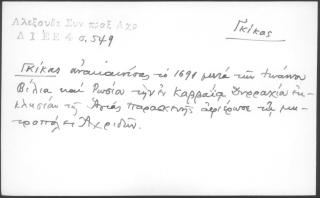 Αλεξουδη Συν πραξ Αχρ
Δ Ι Ε Ε 4 σ. 549
Γκίκας
Γκίκας ἀνακαινίσας τὸ 1691 μετὰ τῶν Ἰωάννου
Βίλια καὶ Ρωσία τὴν ἐν Καρραίᾳ Δυρραχίου ἐκ-
κλησίαν τῆς Ἁγίας Παρασκευῆς ἀφιέρωσε τῇ μη-
τροπόλει Ἀχριδῶν.